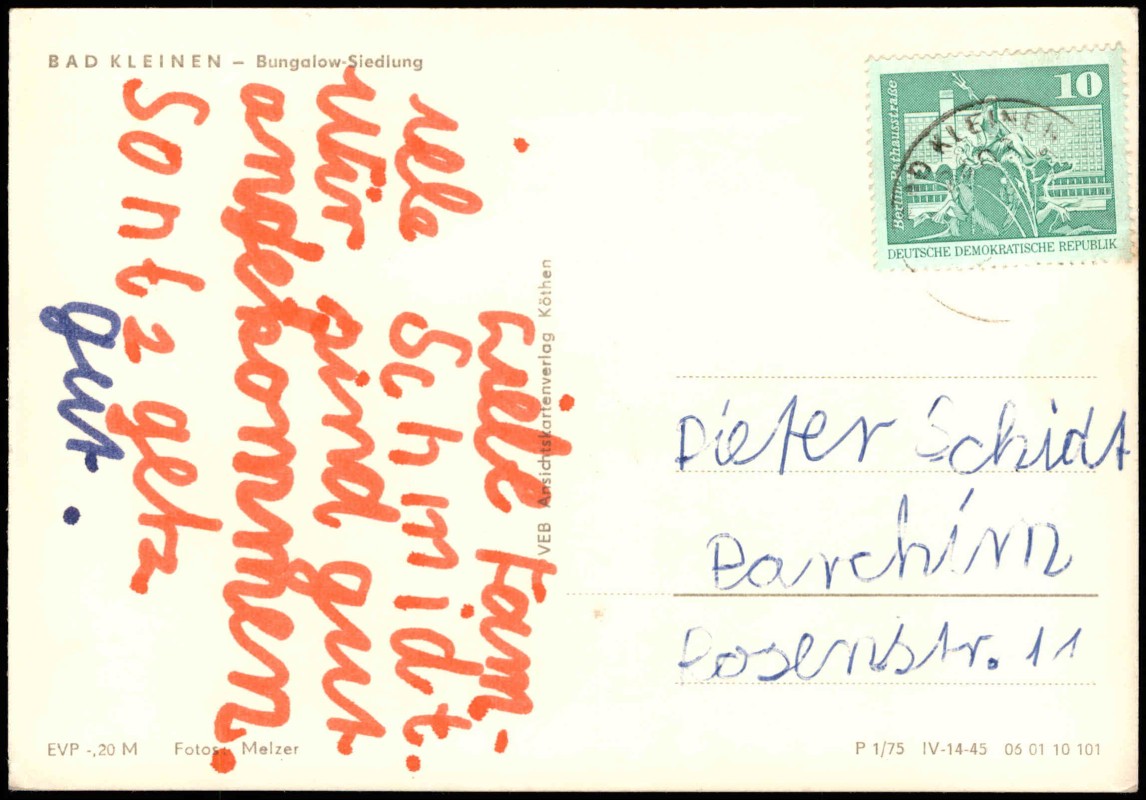 BAD KLEINEN – Bungalow-Siedlung
Fam.
Schmidt.
Wir sind gut
angekommen.
Sontz getz.
gut.
VEB Ansichtskartenverlag Köthen
10
Berlin-Rathausstraße
DEUTSCHE DEMOKRATISCHE REPUBLIK
BAD KLEINEN
Dieter Schidt
Parchim
Rosenstr. 11
EVP -,20 M Fotos: Melzer
P 1/75 IV-14-45 06 01 10 101